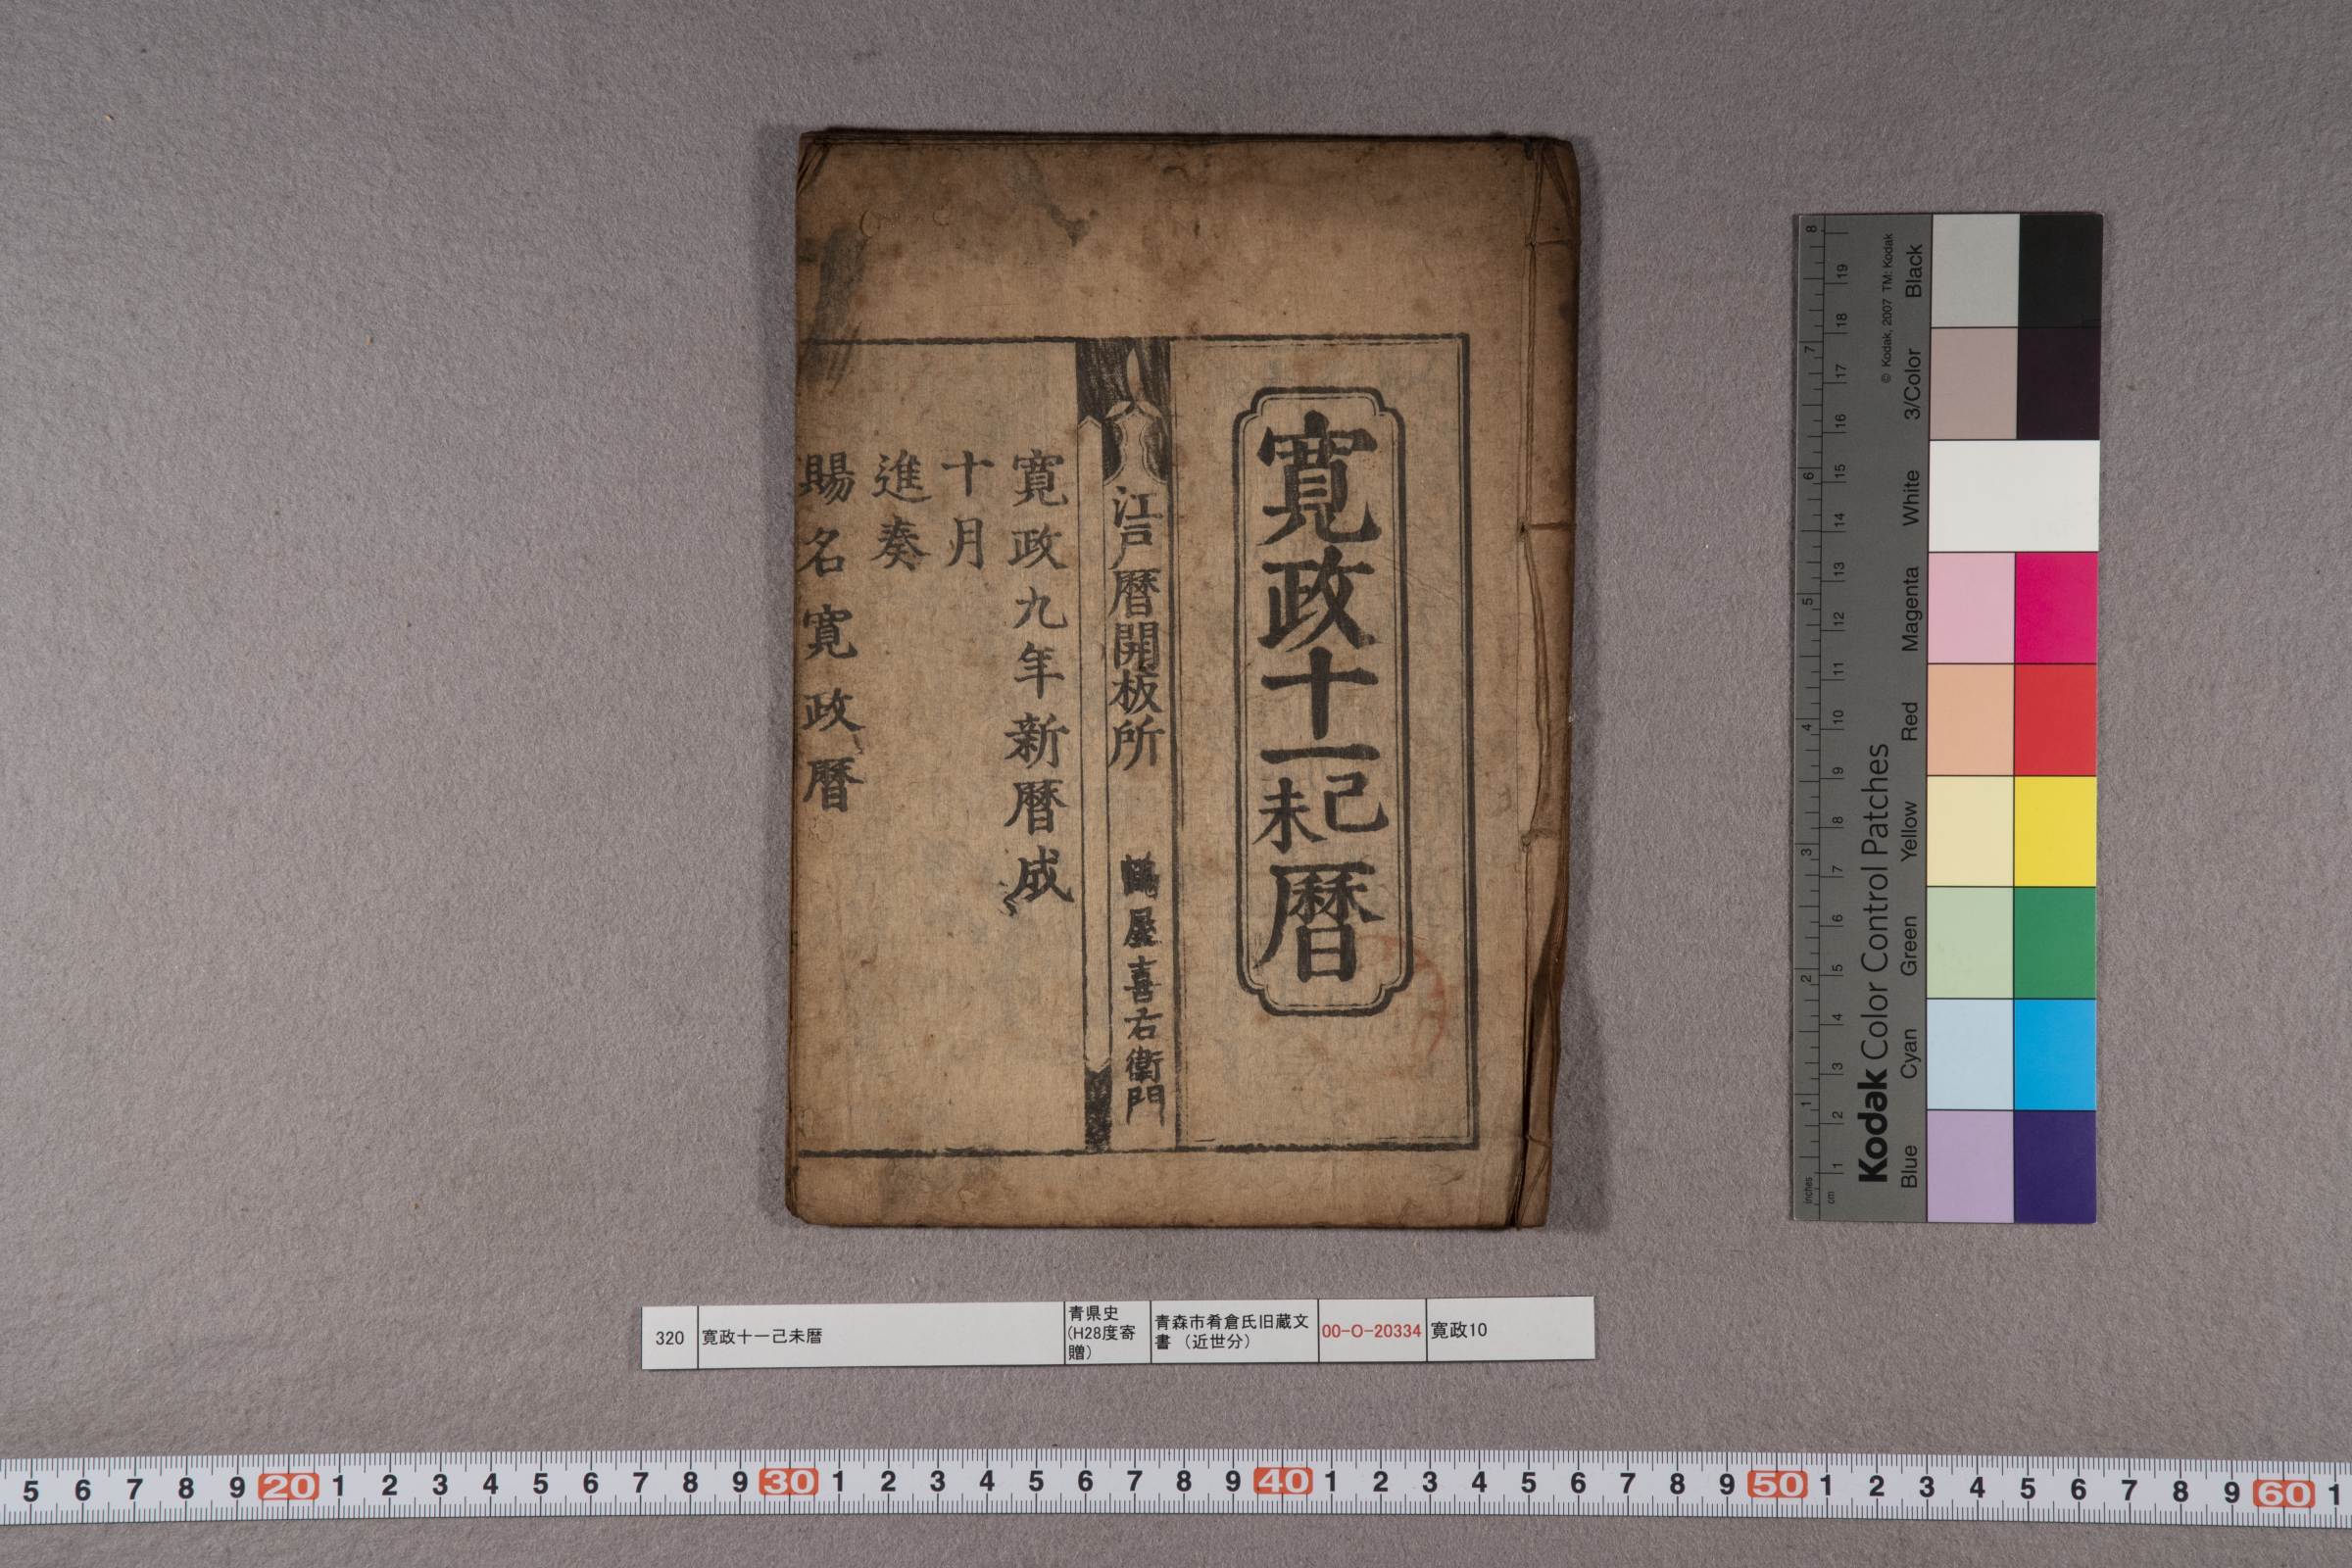 寛政十一己未暦
江戸暦開板所 鶴屋喜右衛門
寛政九年新暦成
十月
進奏
賜名寛政暦
320
寛政十一己未暦
青県史
(H28度寄
贈)
青森市肴倉氏旧蔵文
書 (近世分)
00-O-20334
寛政10
Kodak Color Control Patches
© Kodak, 2007 TM: Kodak
Blue Cyan Green Yellow Red Magenta White 3/Color Black
inches 1 2 3 4 5 6 7 8
cm 1 2 3 4 5 6 7 8 9 10 11 12 13 14 15 16 17 18 19
5 6 7 8 9 20 1 2 3 4 5 6 7 8 9 30 1 2 3 4 5 6 7 8 9 40 1 2 3 4 5 6 7 8 9 50 1 2 3 4 5 6 7 8 9 60 1